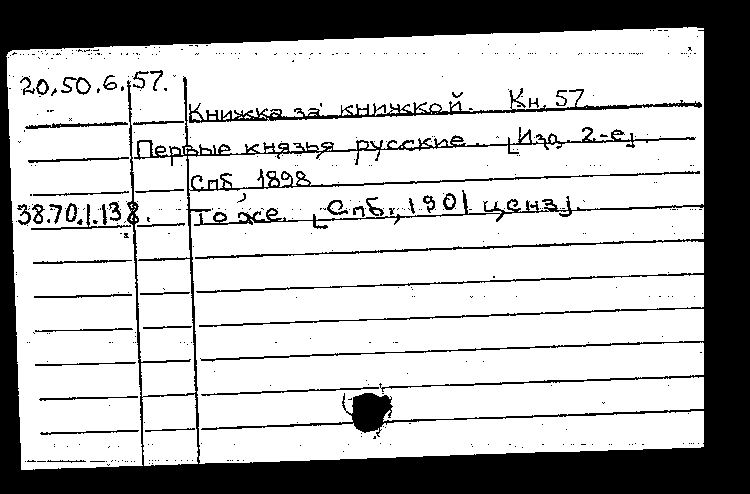 20.50.6.57.
Книжка за книжкой. Кн. 57
Первые князья русские. [Изд. 2-е].
Спб, 1898
38.70.1.138. То же. [Спб., 1901 ценз].